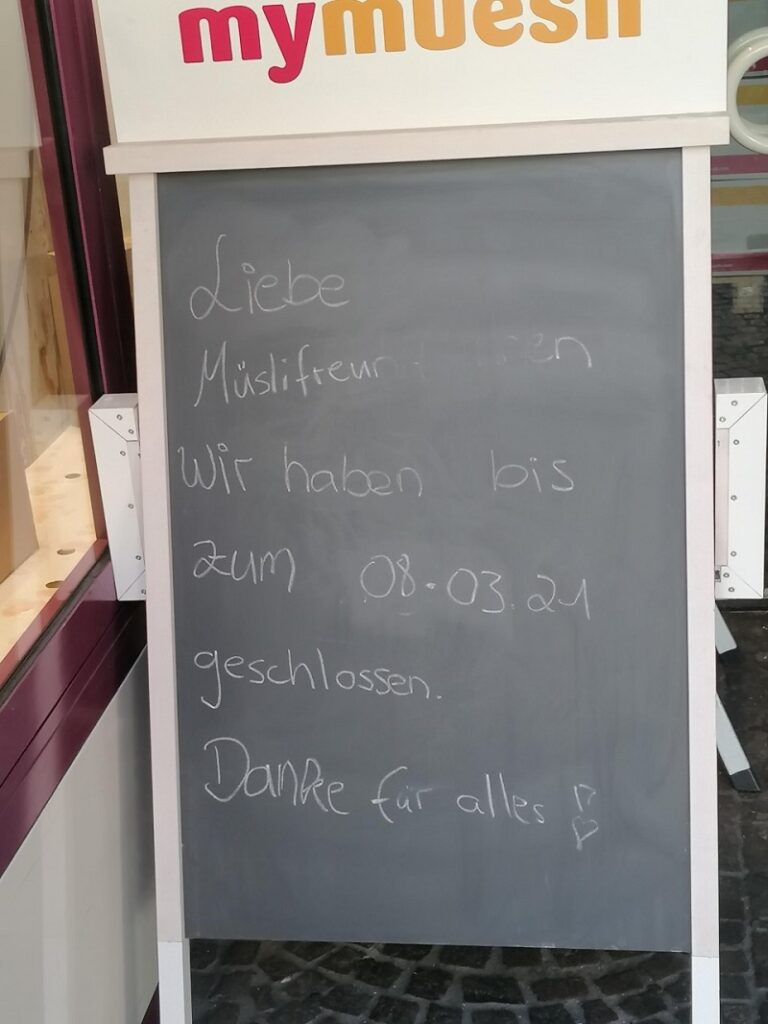 mymuesli
Liebe
Müslifreun
Wir haben bis
zum 08.03.21
geschlossen.
Danke für alles!